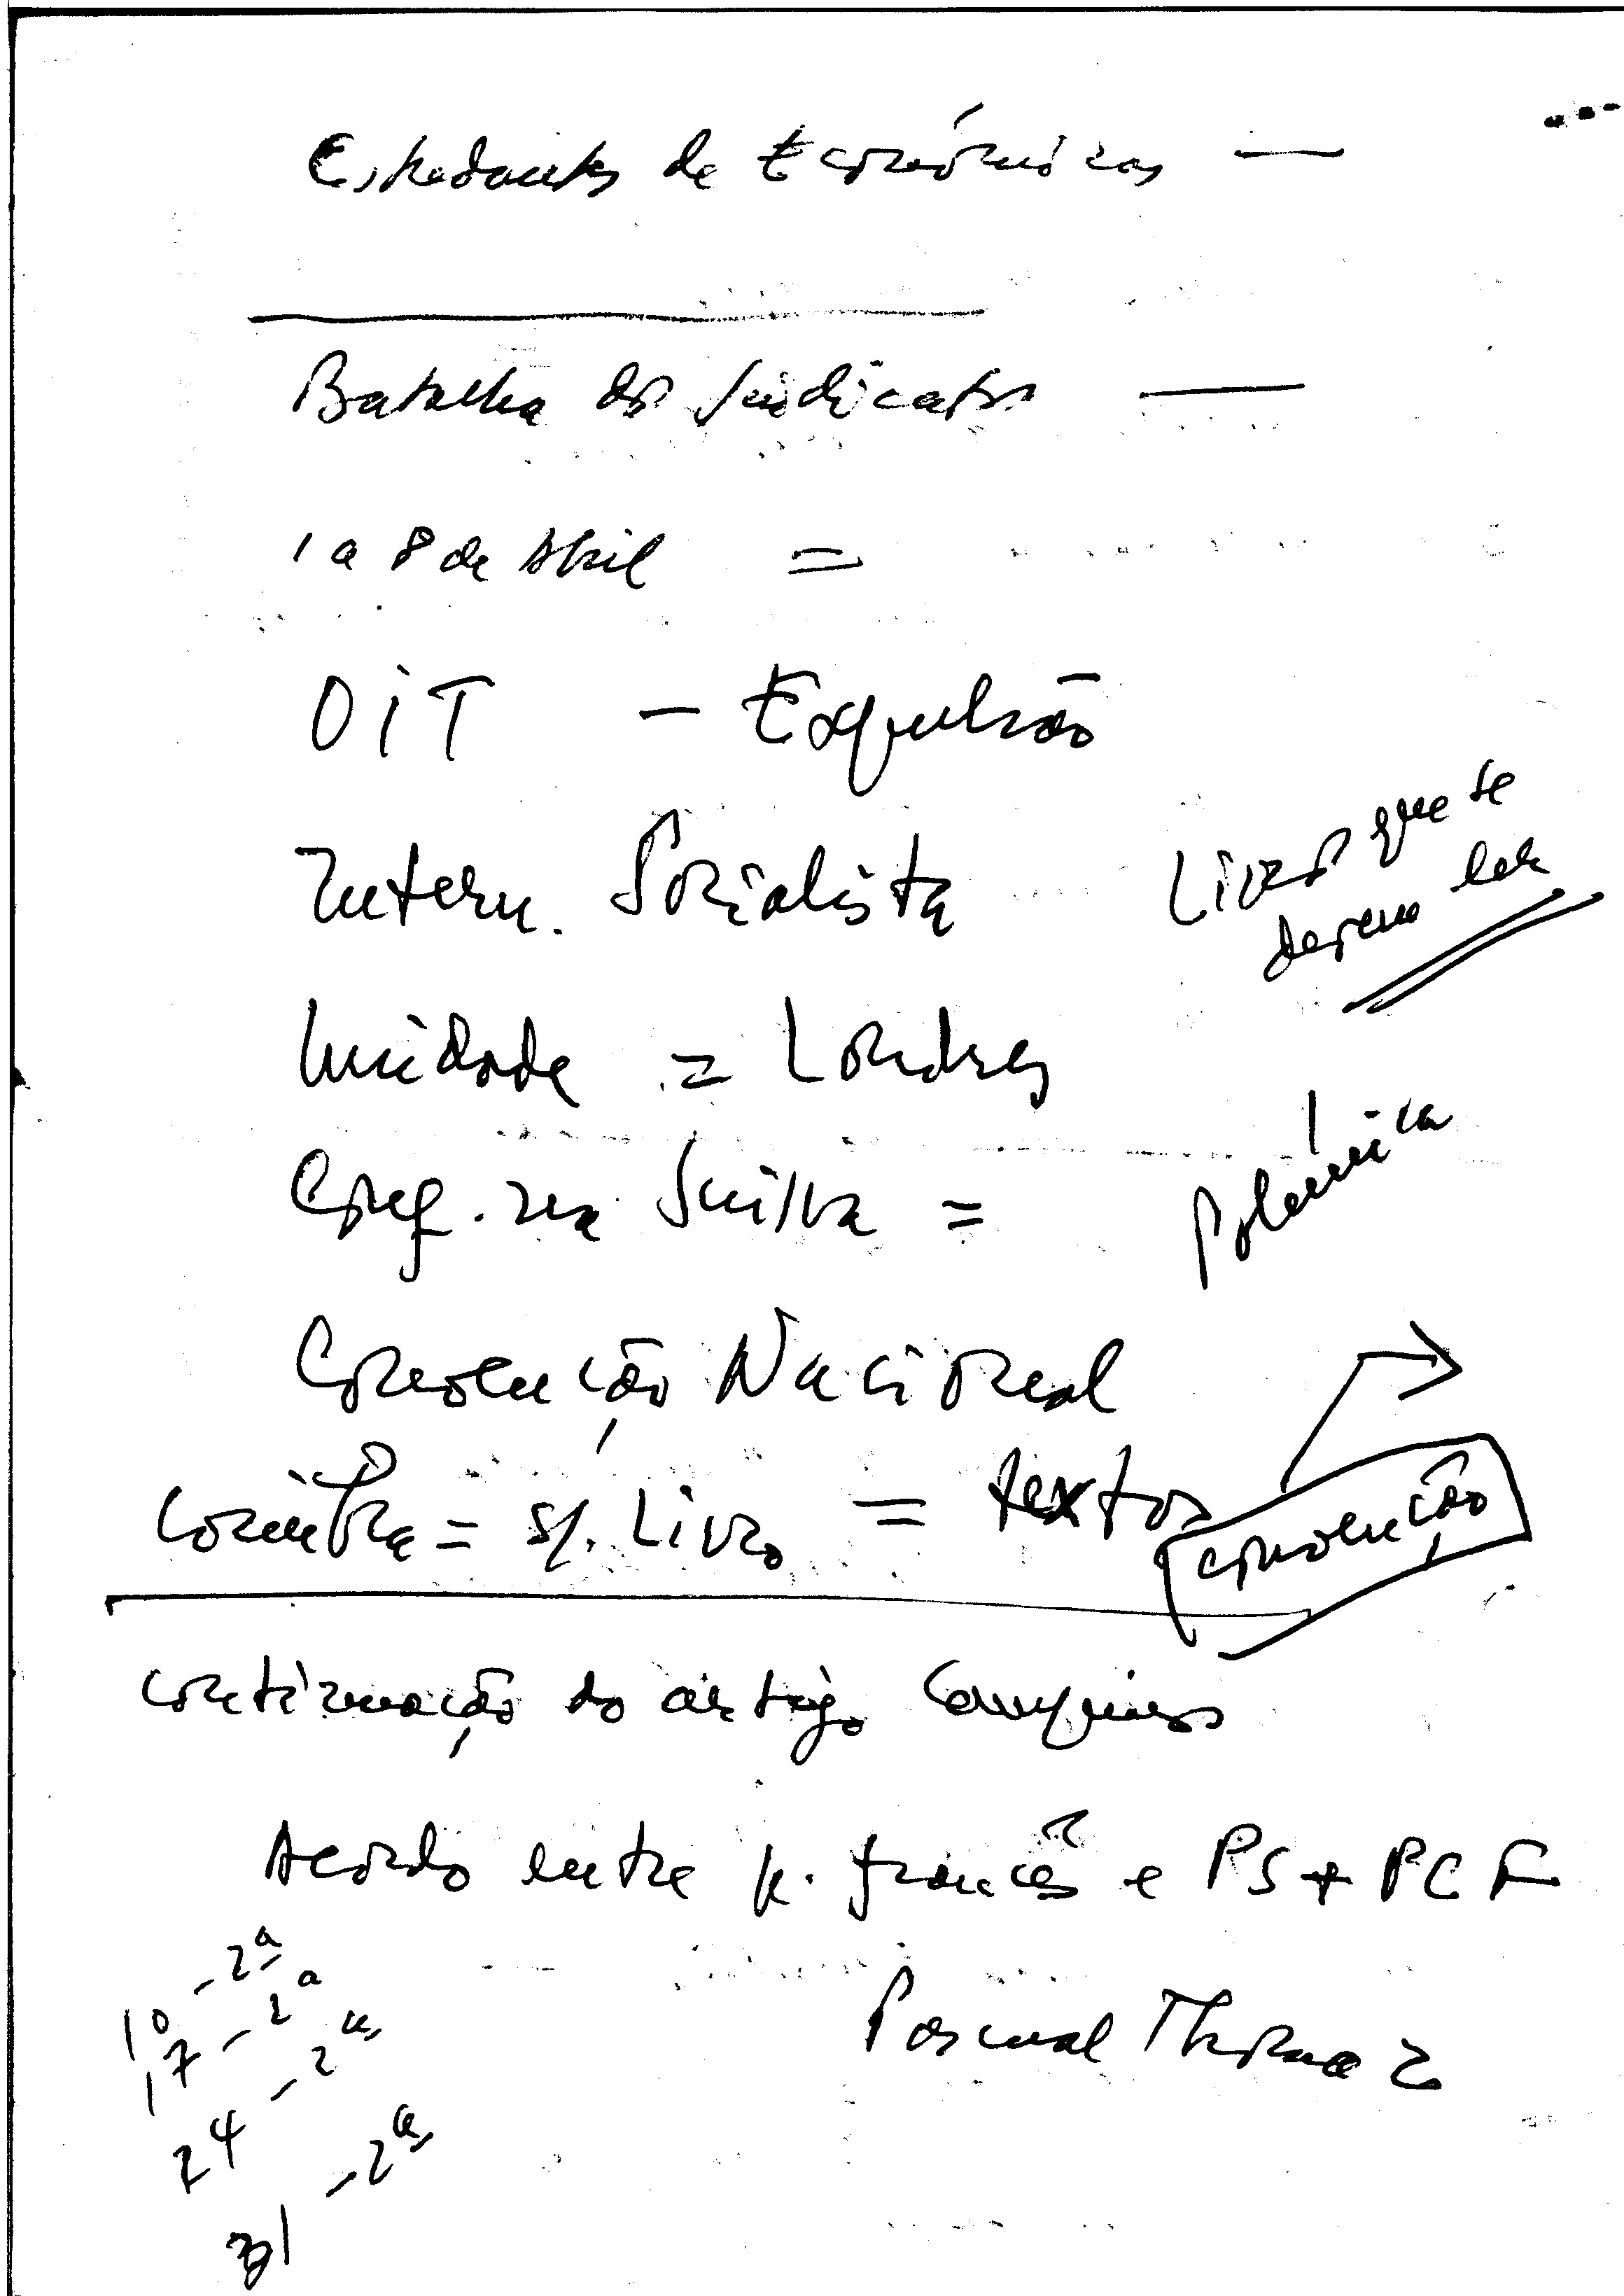 Estudantes de Económicas —
Batalha dos Sindicatos —
1 a 8 de Abril =
OIT — Expulsão
Intern. Socialista
Livros que se
devem ler
Unidade = Londres
Conf. na Suíssa =
Polémica
Convenção Nacional
Coimbra = s/. Livro = textos
convenção
continuação do artigo
Acordo entre p. francês e PS + PCF
10 - 2ª
17 - 2ª
24 - 2ª
31 - 2ª
Pascual Thomaz